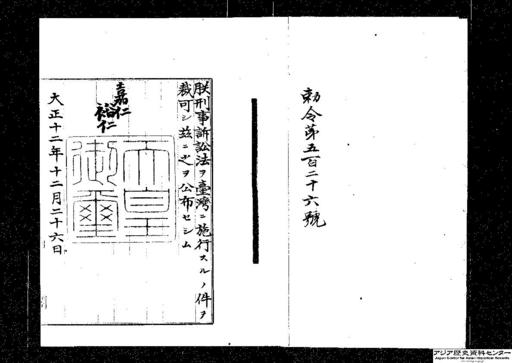 勅令第五百二十六號
朕刑事訴訟法ヲ臺灣ニ施行スルノ件ヲ
裁可シ茲ニ之ヲ公布セシム
嘉仁
裕仁
天皇
御璽
大正十二年十二月二十六日
アジア歴史資料センター
Japan Center for Asian Historical Records